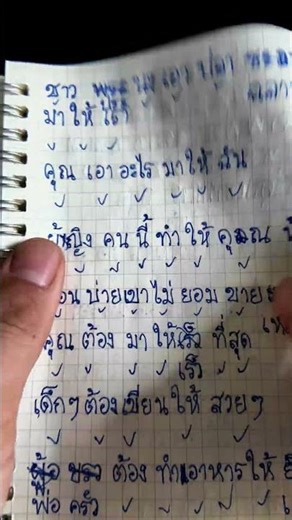 ชาว เอา ปลา
มาให้
คุณ เอา อะไร มาให้ ฉัน
ผู้หญิง คน นี้ ทำ ให้ คุณ
ตอน บ่าย เขา ไม่ ยอม ขาย
คุณ ต้อง มา ให้เร็ว ที่สุด
เร็ว
เด็กๆ ต้อง เขียน ให้ สวยๆ
ต้อง ทำอาหาร ให้
พ่อ ครัว